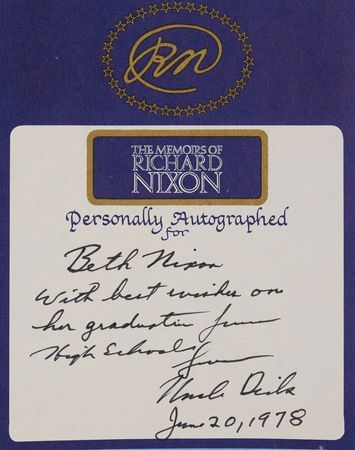 RN
THE MEMOIRS OF
RICHARD
NIXON
Personally Autographed
for
Beth Nixon
With best wishes on
her graduation from
High School
from
Uncle Dick
June 20, 1978